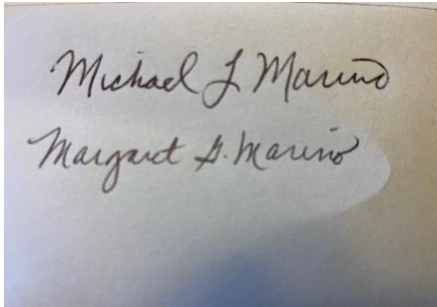 Michael J Marino
Margaret G. Marino